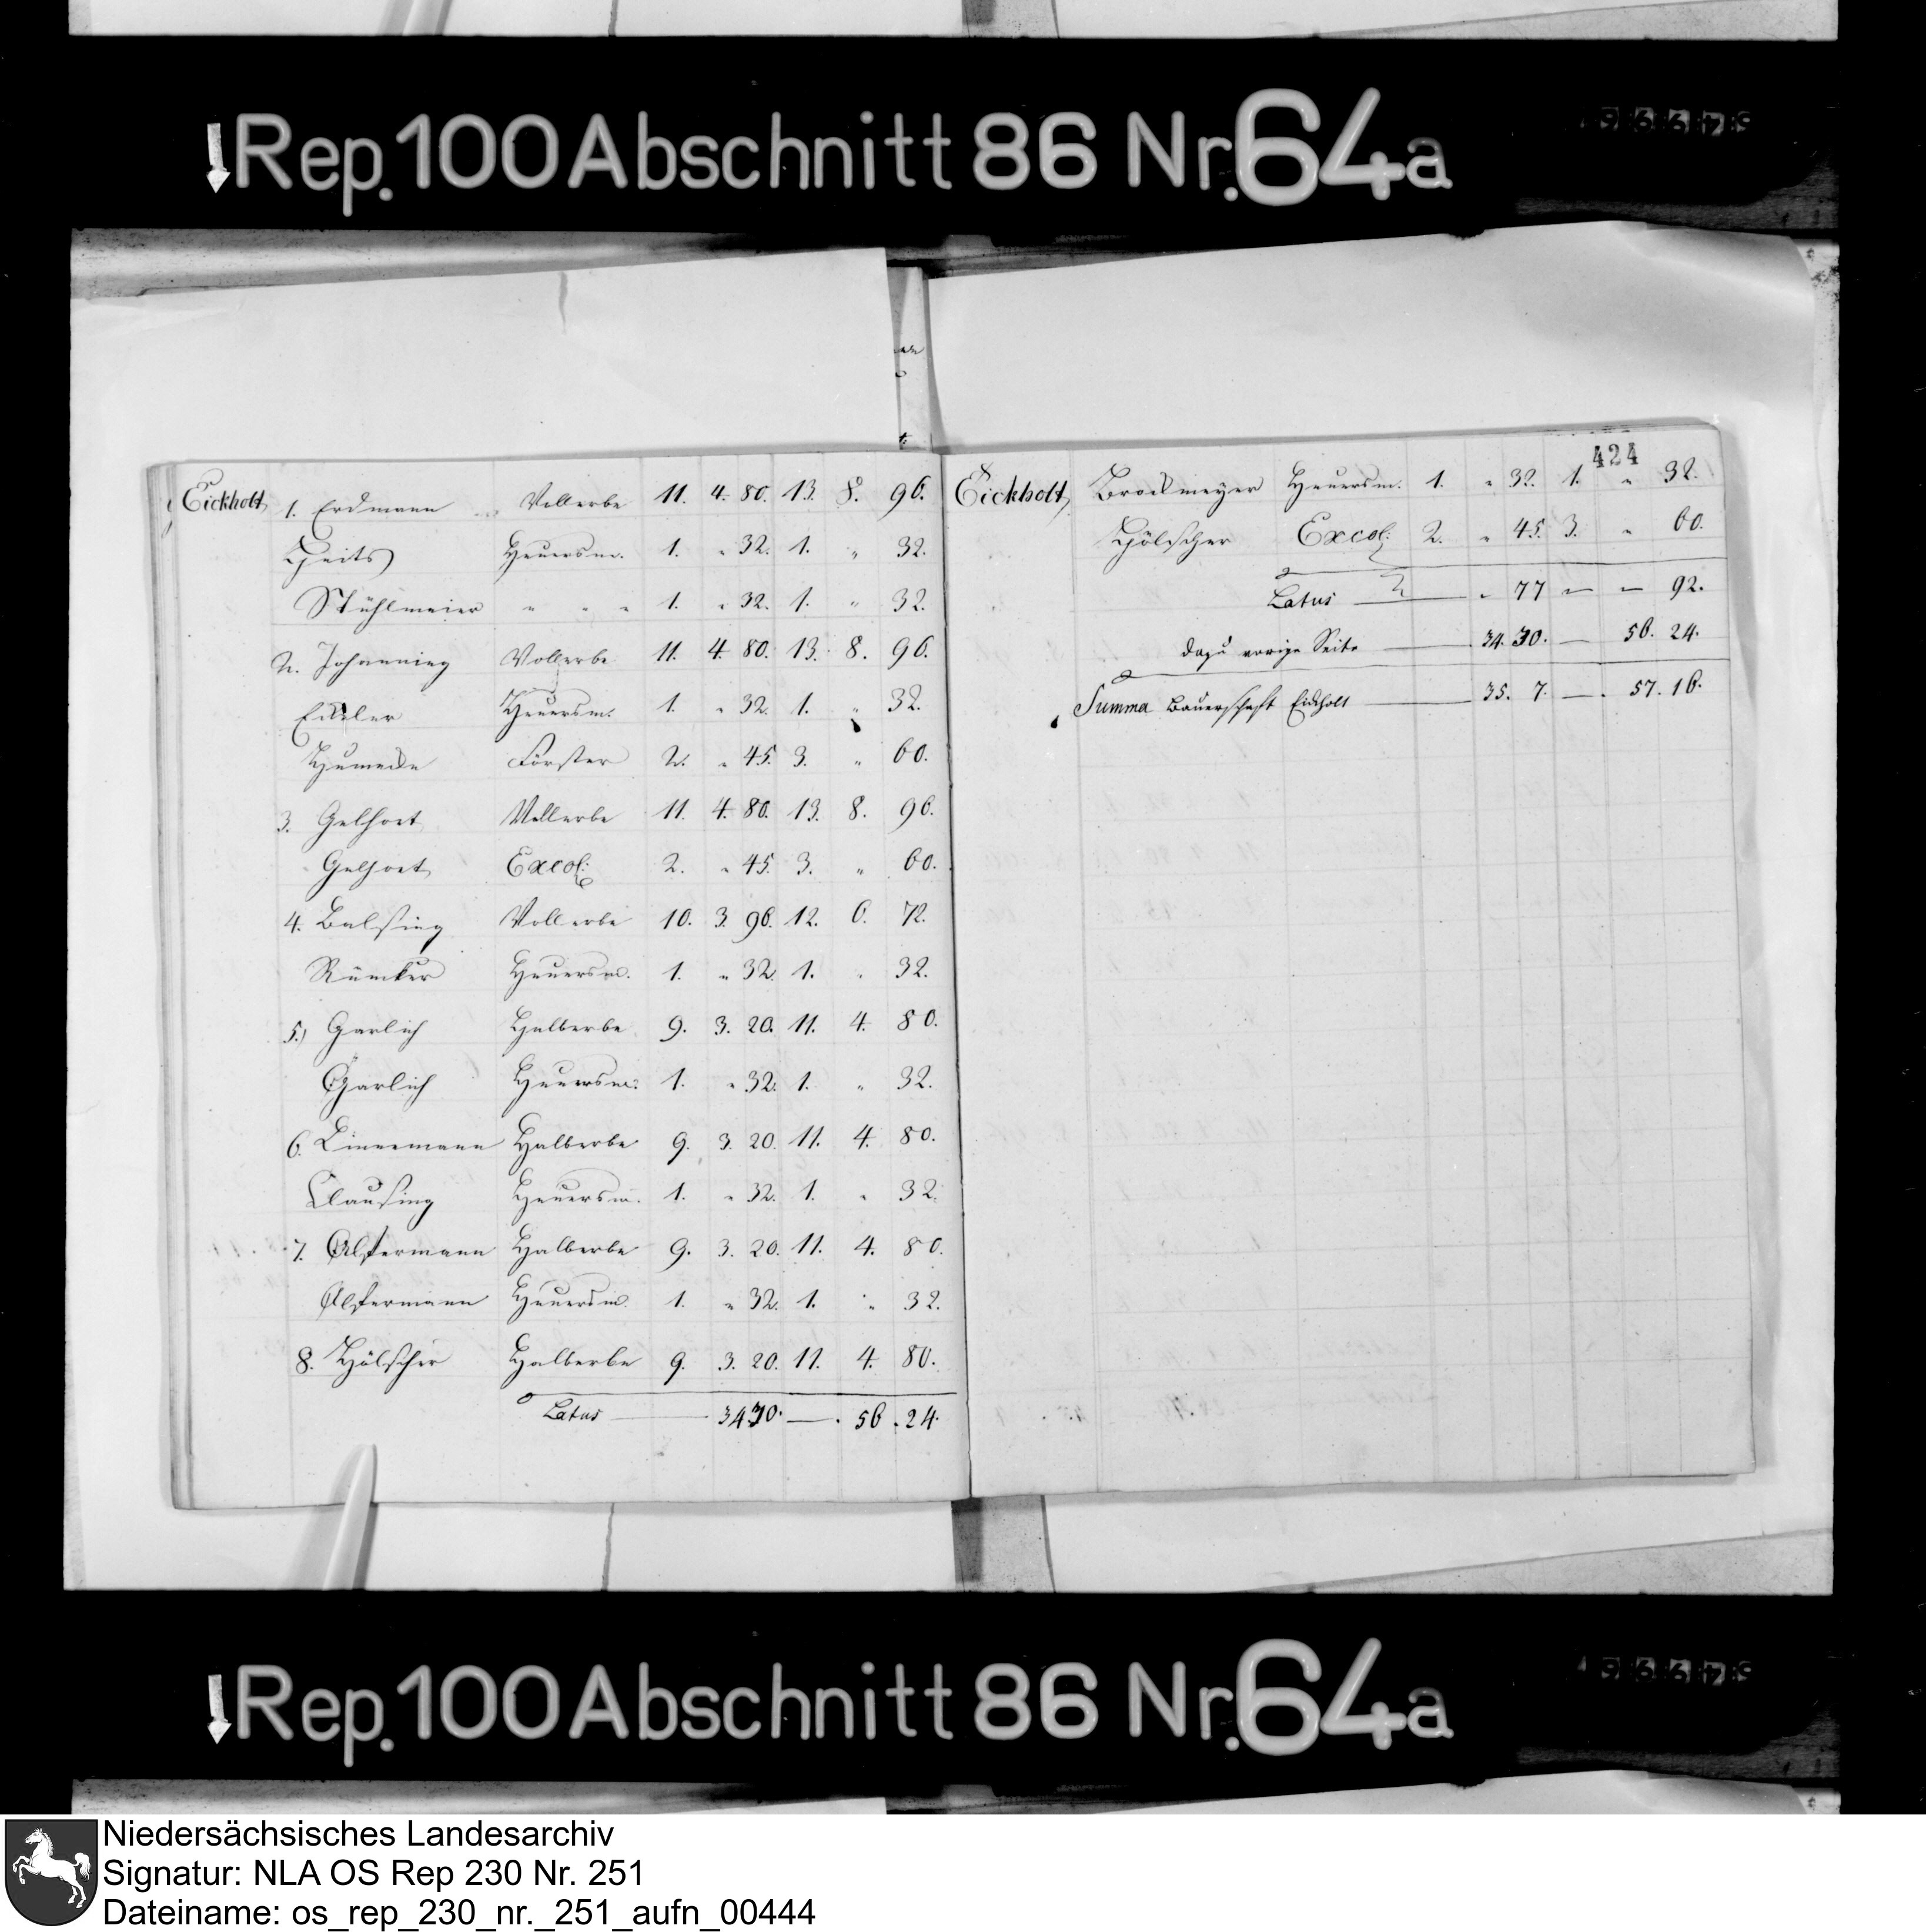 Rep. 100 Abschnitt 86 Nr. 64a
Eickholt 1. Erdmann Vollerbe 11. 4. 80. 13. 8. 96.
Heits Heuersm. 1. " 32. 1. " 32.
Stühlmeier " " " 1. " 32. 1. " 32.
2. Johanning Vollerbe 11. 4. 80. 13. 8. 96.
Heuersm. 1. " 32. 1. " 32.
Förster 2. " 45. 3. " 60.
3. Gelhort Vollerbe 11. 4. 80. 13. 8. 96.
Gelhort Excol: 2. " 45. 3. " 60.
4. Balsing Vollerbe 10. 3. 96. 12. 6. 72.
Rümker Heuersm. 1. " 32. 1. " 32.
5.) Garlich Halberbe 9. 3. 20. 11. 4. 80.
Garlich Heuersm: 1. " 32. 1. " 32.
6. Linnemann Halberbe 9. 3. 20. 11. 4. 80.
Clausing Heuersm. 1. " 32. 1. " 32.
7. Halberbe 9. 3. 20. 11. 4. 80.
Heuersm. 1. " 32. 1. " 32.
8. Hölscher Halberbe 9. 3. 20. 11. 4. 80.
Latus — 34 30. — . 56 . 24.
424
Eickholt Brockmeyer Heuersm. 1. " 32. 1. " 32.
Hölscher Excol: 2. " 45. 3. " 60.
Latus — " 77 — — 92.
dazu vorige Seite — 34. 30. — 56. 24.
Summa Bauerschaft Eickholt — 35. 7. — . 57. 16.
Rep. 100 Abschnitt 86 Nr. 64a
Niedersächsisches Landesarchiv
Signatur: NLA OS Rep 230 Nr. 251
Dateiname: os_rep_230_nr._251_aufn_00444